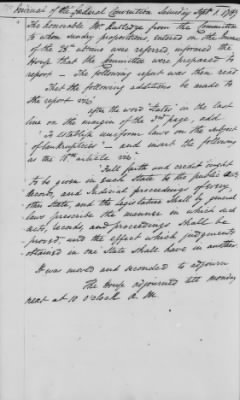 Journal of the federal Convention Saturday Sept. 1. 1787
The honorable Mr Rutledge from the Committee
to whom sundry propositions, entered on the Journal
of the 28th ultimo were referred, informed the
House that the Committee were prepared to
report — The following report was then read
That the following additions be made to
the report viz
after the word "States" in the last
line on the margin of the 3rd page, add
"To establish uniform laws on the subject
of bankruptcies" — and insert the following
as the 16th article viz
"Full faith and credit ought
to be given in each State to the public acts,
records, and Judicial proceedings of every
other State, and the legislature shall by general
laws prescribe the manner in which such
acts, records, and proceedings shall be
proved, and the effect which judgments
obtained in one State shall have in another
It was moved and seconded to adjourn
The House adjourned till monday
next at 10 o'Clock A. M.